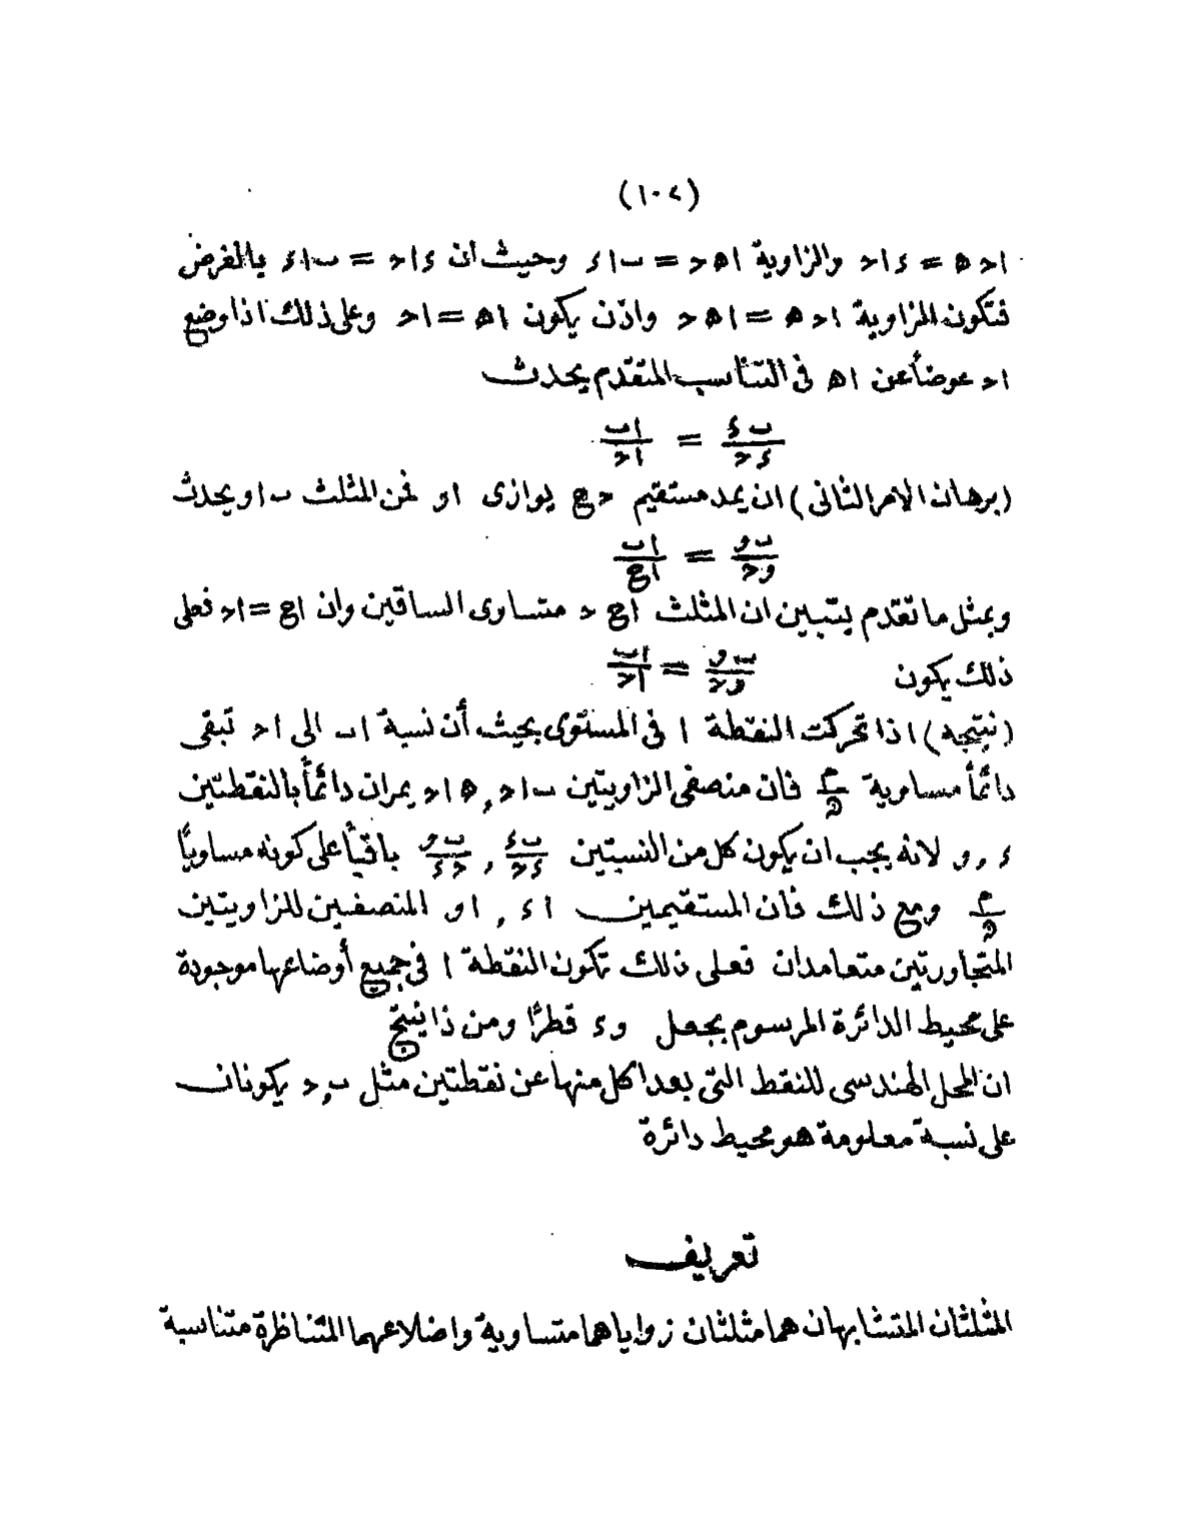 (١٠٢)
احه = ءاح والزاوية اهح = ـاء وحيث ان ءاح = ـاء بالفرض
فتكون الزاوية احه = اهح واذن يكون اه = اح وعلى ذلك اذا وضع
اح عوضاً عن اه فى التناسب المتقدم يحدث
ـء/ءح = اـ/اح
(برهان الامر الثانى) ان يمد مستقيم حع يوازى او فمن المثلث ـاو يحدث
ـو/وح = اـ/اع
وبمثل ما تقدم يتبين ان المثلث اع ح متساوى الساقين وان اع = اح فعلى
ذلك يكون ـو/وح = اـ/اح
(نتيجه) اذا تحركت النقطة ا فى المستوى بحيث أن نسبة اـ الى اح تبقى
دائماً مساوية م/ن فان منصفى الزاويتين ـاح , هاح يمران دائماً بالنقطتين
ء , و لانه يجب ان يكون كل من النسبتين ـء/ءح , ـو/حء باقياً على كونه مساوياً
م/ن ومع ذلك فان المستقيمين اء , او المنصفين للزاويتين
المتجاورتين متعامدان فعلى ذلك تكون النقطة ا فى جميع أوضاعها موجودة
على محيط الدائرة المرسوم بجعل وء قطرًا ومن ذا ينتج
ان المحل الهندسى للنقط التى بعدا كل منها عن نقطتين مثل ـ , ح يكونان
على نسبة معلومة هو محيط دائرة
تعريف
المثلثان المتشابهان هما مثلثان زواياهما متساوية واضلاعهما المتناظرة متناسبة